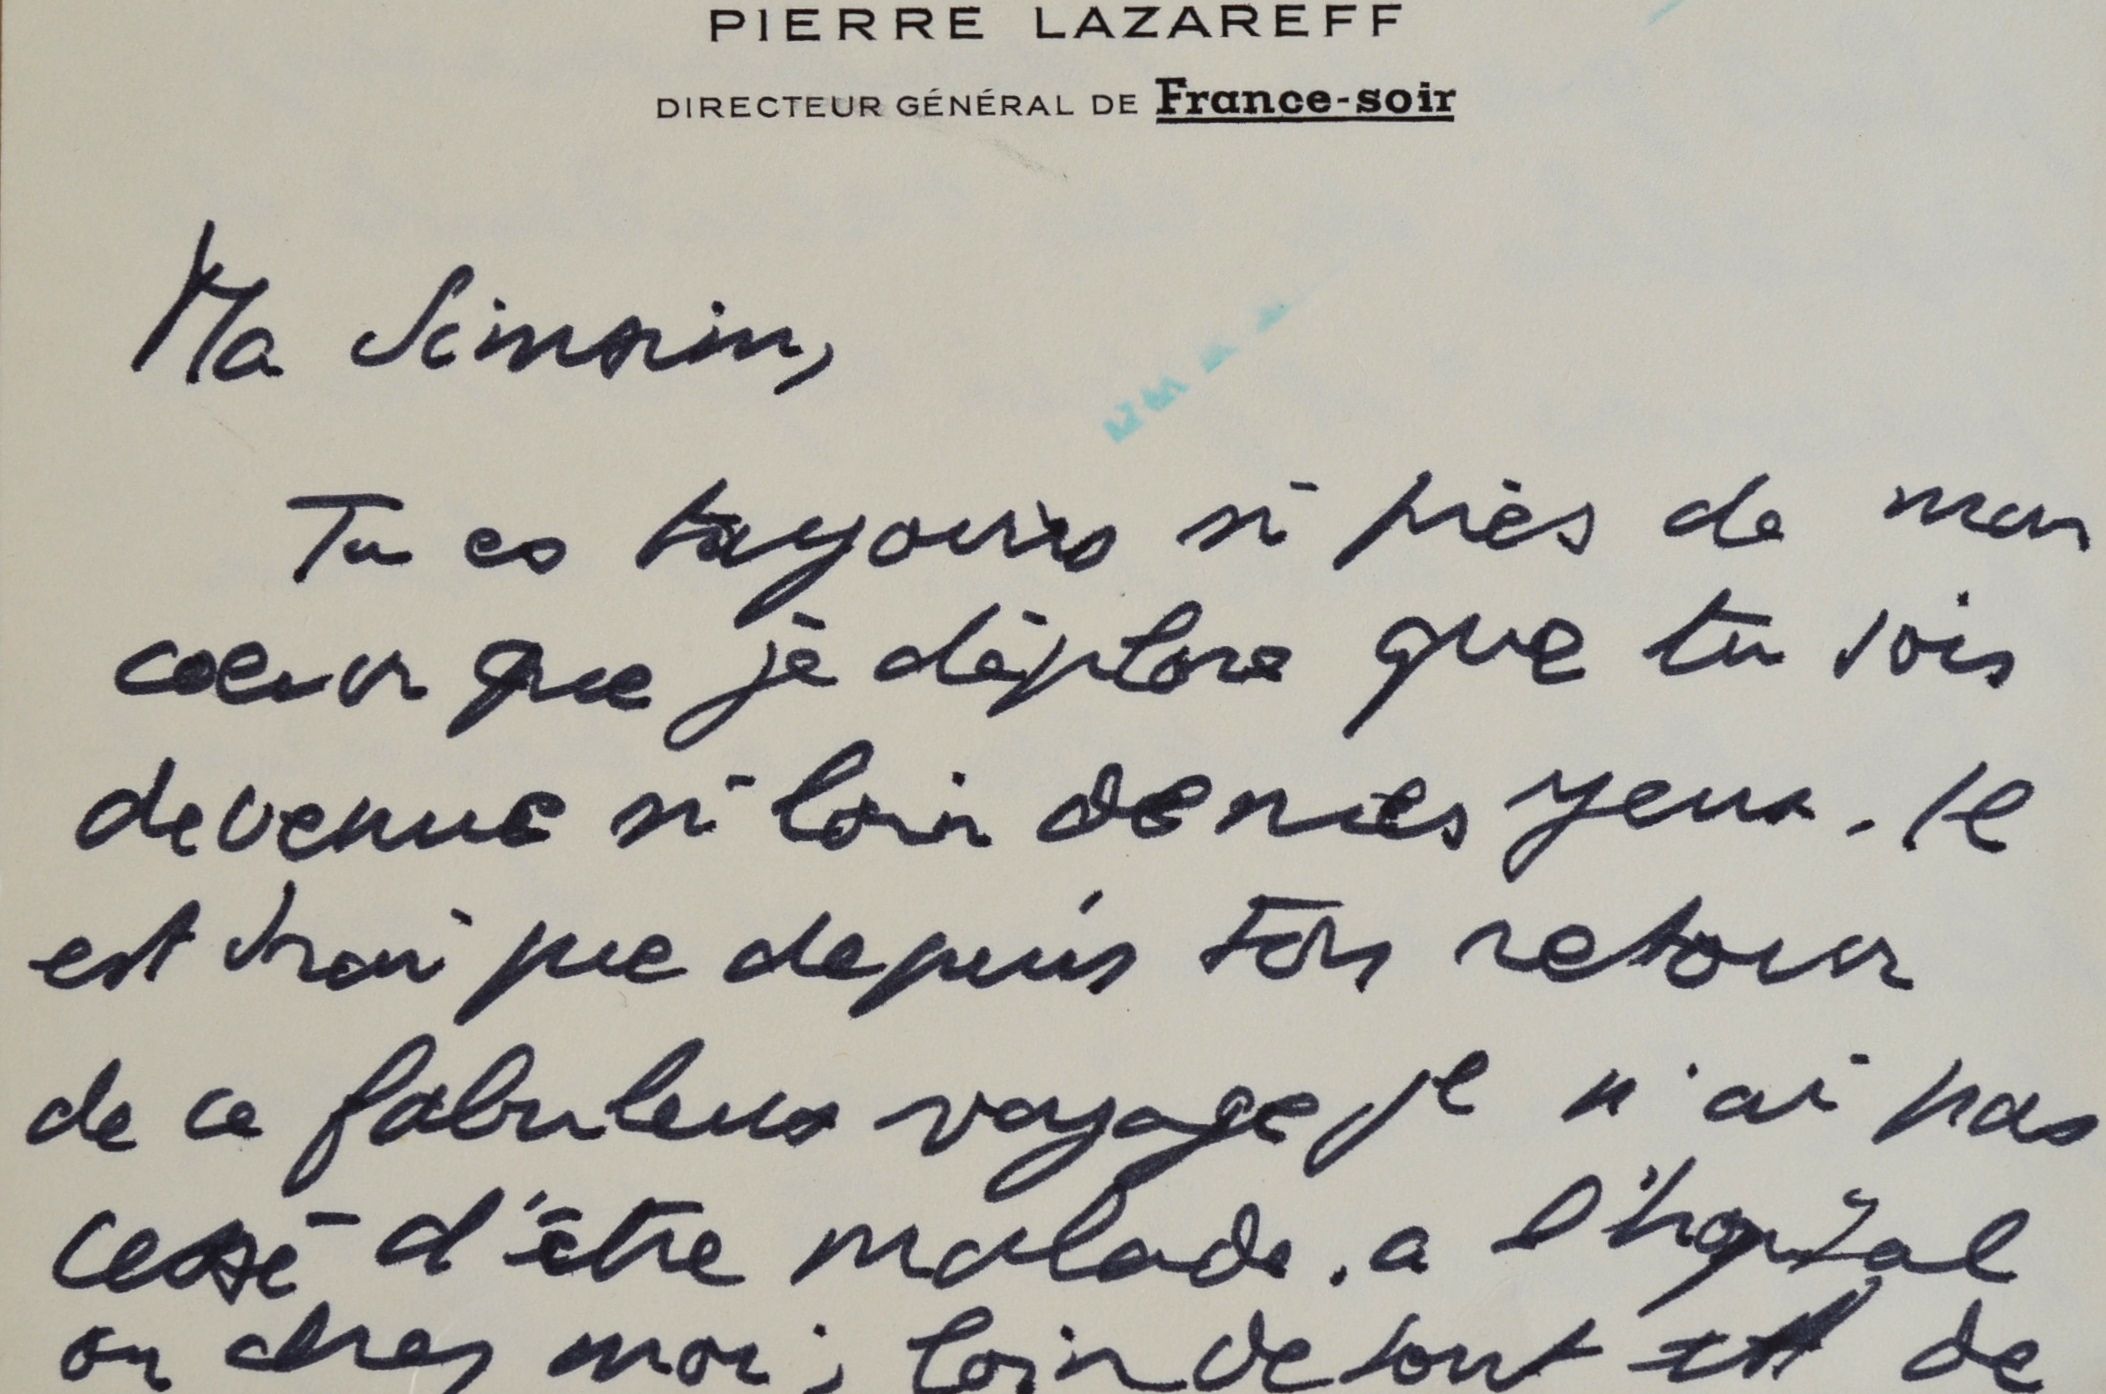 PIERRE LAZAREFF
DIRECTEUR GÉNÉRAL DE France-soir
Ma Simsim,
Tu es toujours si près de mon
coeur que je déplore que tu sois
devenue si loin de mes yeux. Il
est vrai que depuis ton retour
de ce fabuleux voyage, je n'ai pas
cessé d'être malade. a l'hopital
ou chez moi, loin de tout et de